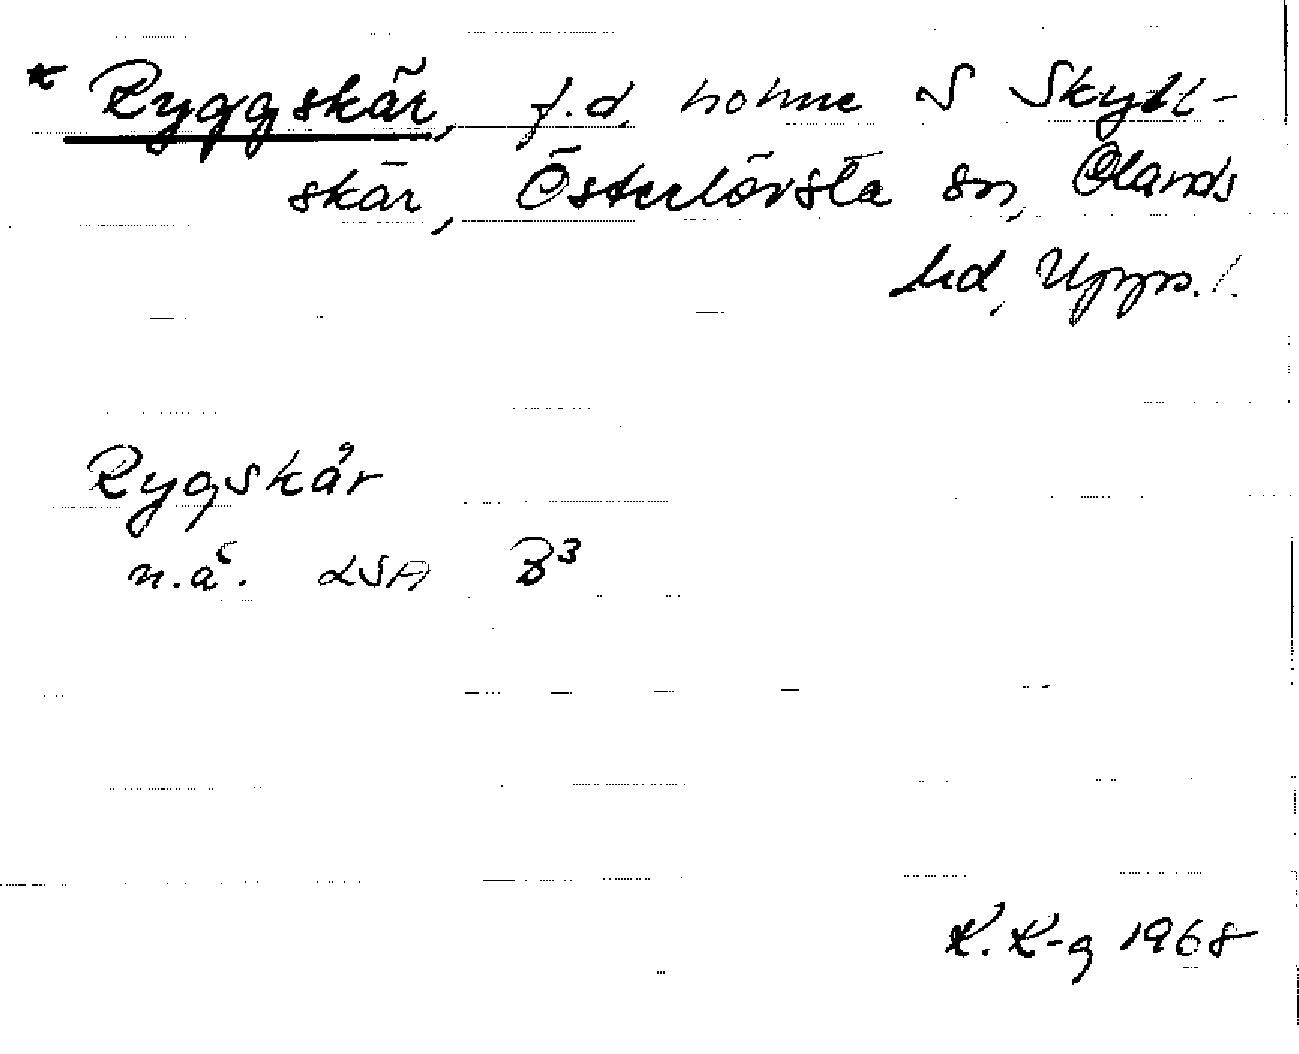 * Ryggskär, f.d. holme S Skyll-
skär, Österlövsta sn, Olands
hd, Uppl.
Rygskår
n.ä. LSA B³
K. K-g 1968